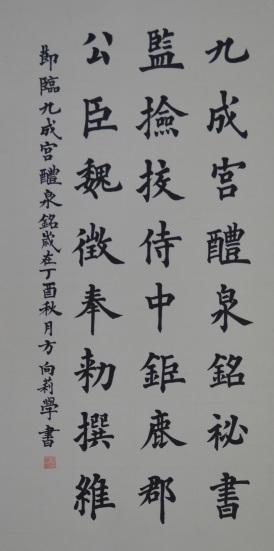 九成宮醴泉銘祕書
監撿挍侍中鉅鹿郡
公臣魏徵奉勑撰維
節臨九成宮醴泉銘歲在丁酉秋月方向莉學書